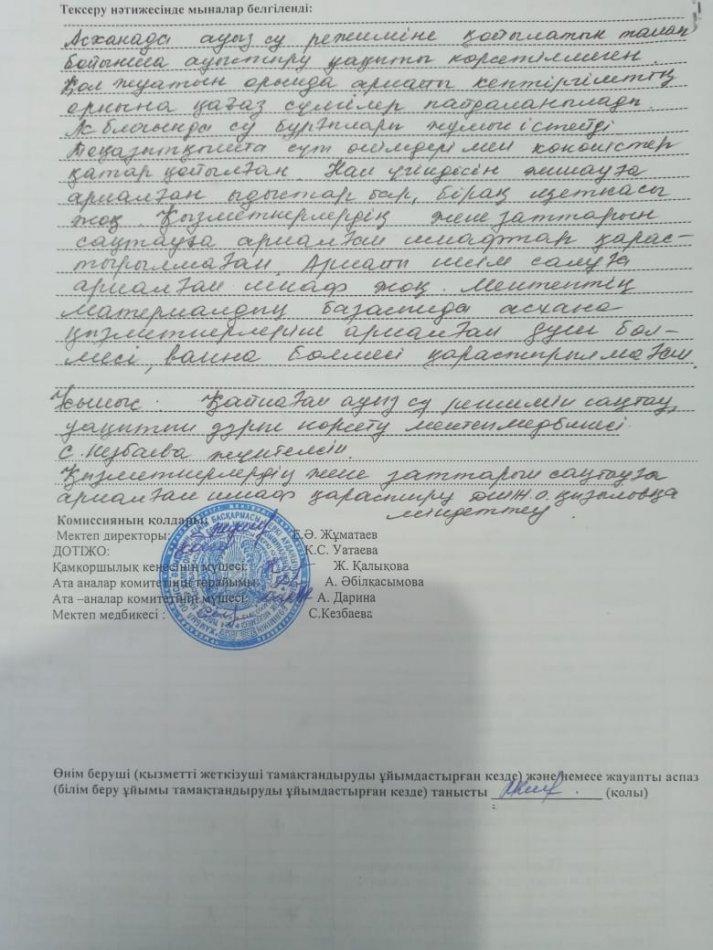 Тексеру нәтижесінде мыналар белгіленді:
Асханада ауыз су режиміне қойылатын талап
бойынша ауыстыру уақыты көрсетілмеген.
Қол жуатын орында арнайы кептіргіштің
орнына қағаз сүлгілер пайдаланылады.
Ас блогында су бұрғылары жұмыс істейді
Тоңазытқышта сүт өнімдері мен
қатар қойылған. Нан үгіндісін жинауға
арналған ыдыстар бар, бірақ щеткасы
жоқ. Қызметкерлердің жеке заттарын
сақтауға арналған шкафтар қарас-
тырылмаған. Арнайы киім салуға
арналған шкаф жоқ. Мектептің
материалдық базасында асхана
қызметкерлеріне арналған душ бөл-
месі, ванна бөлмесі қарастырылмаған.
Ұсыныс. Қайнаған ауыз су режимін сақтау,
уақытын дұрыс көрсету мектеп медбикесі
С. Кезбаева жүктелсін.
Қызметкерлердің жеке заттарын сақтауға
арналған шкаф қарастыру
міндеттеу.
Комиссияның қолдары:
Мектеп директоры: Е.Ә. Жұматаев
ДОТІЖО: К.С. Уатаева
Қамқоршылық кеңесінің мүшесі: Ж. Қалықова
Ата аналар комитетінің төрайымы: А. Әбілқасымова
Ата –аналар комитетінің мүшесі: А. Дарина
Мектеп медбикесі : С.Кезбаева
Өнім беруші (қызметті жеткізуші тамақтандыруды ұйымдастырған кезде) және/немесе жауапты аспаз
(білім беру ұйымы тамақтандыруды ұйымдастырған кезде) танысты ________________ (қолы)